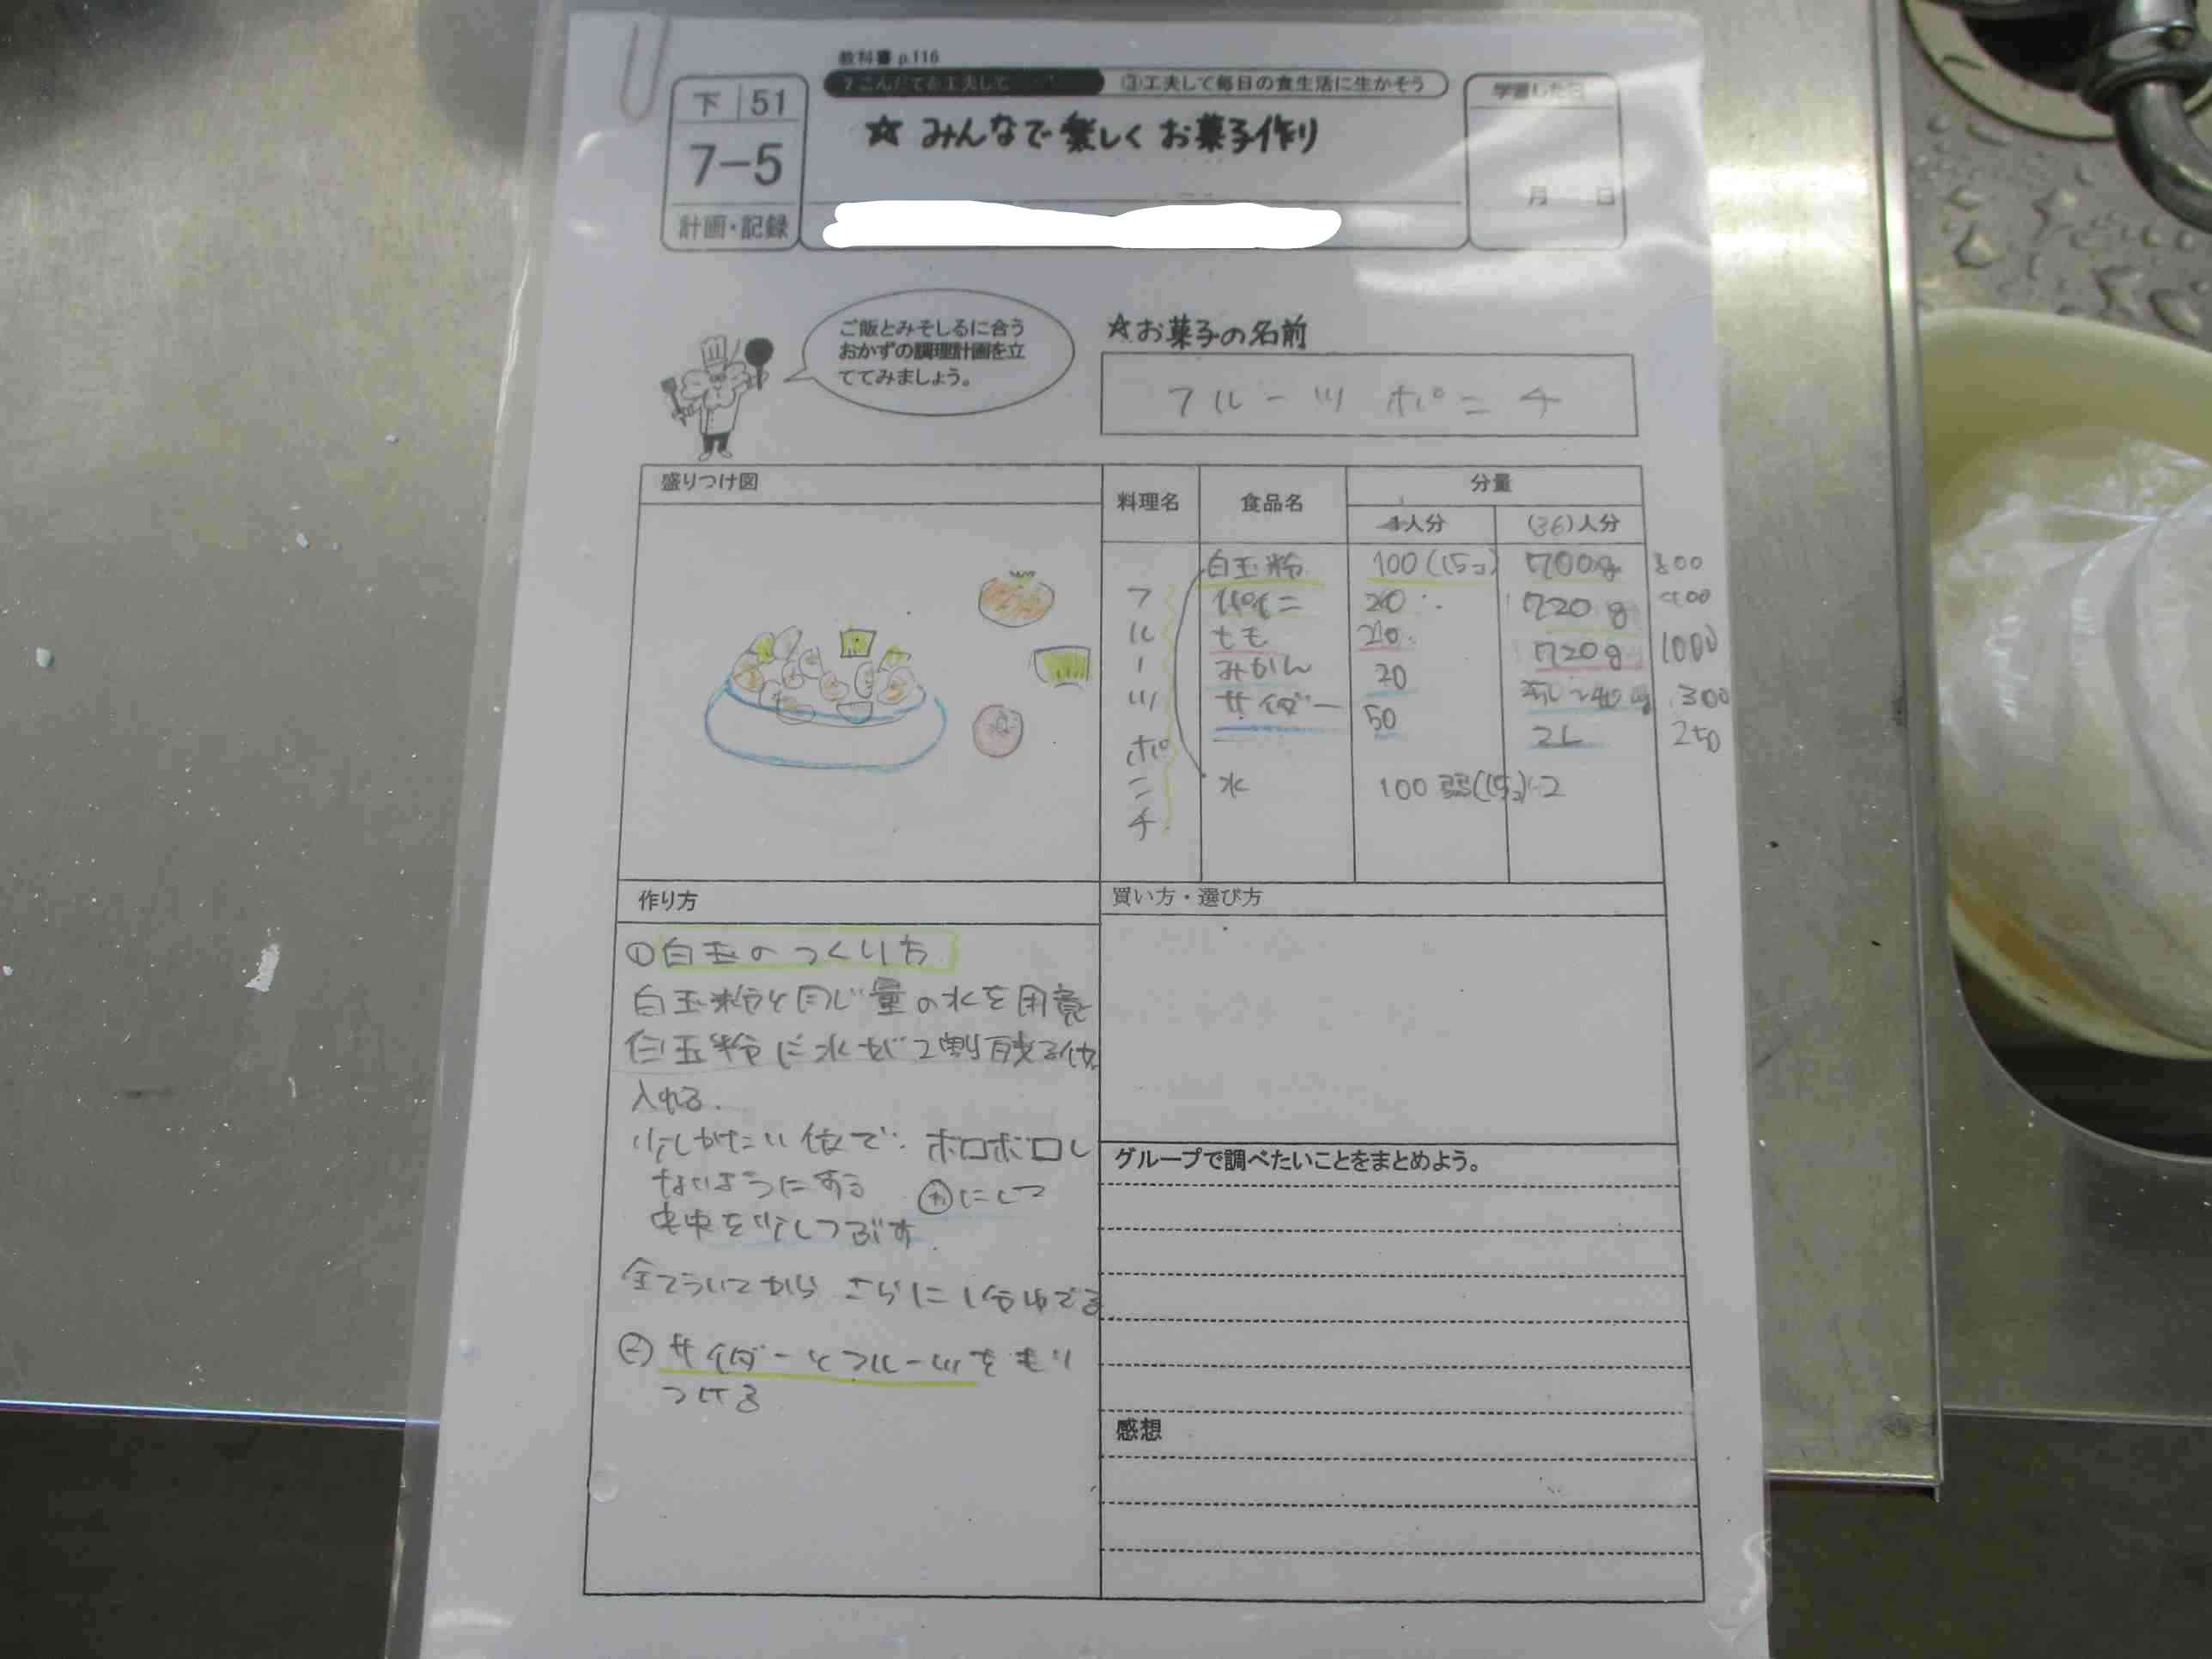 教科書 p.116
7こんだてを工夫して
③工夫して毎日の食生活に生かそう
下 51
7-5
計画・記録
☆ みんなで楽しく お菓子作り
学習した日
月 日
ご飯とみそしるに合う
おかずの調理計画を立
ててみましょう。
☆お菓子の名前
フルーツ ポンチ
盛りつけ図
料理名
食品名
分量
人分
(36)人分
フルーツポンチ
白玉粉 100(15コ) 700g 800
パイン 20 720g
もも 20 720g 1000
みかん 20 300
サイダー 50 2L 250
水 100弱(15コ)
作り方
①白玉のつくり方
白玉粉と同じ量の水を用意
白玉粉に水が2割残る位
入れる.
少しかたい位で ボロボロし
ないようにする
丸にして
中央を少しつぶす.
全てういてから さらに1分ゆでる
② サイダーとフルーツをもり
つける
買い方・選び方
グループで調べたいことをまとめよう。
感想